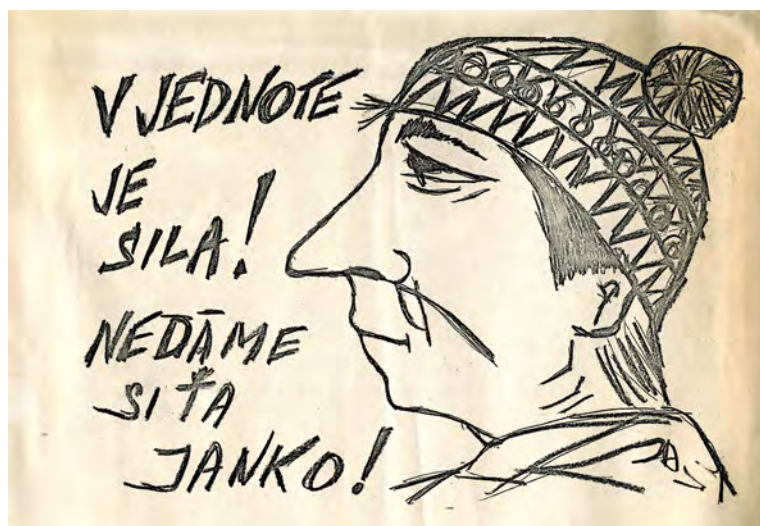 V JEDNOTE
JE
SILA!
NEDÁME
SI ŤA
JANKO!